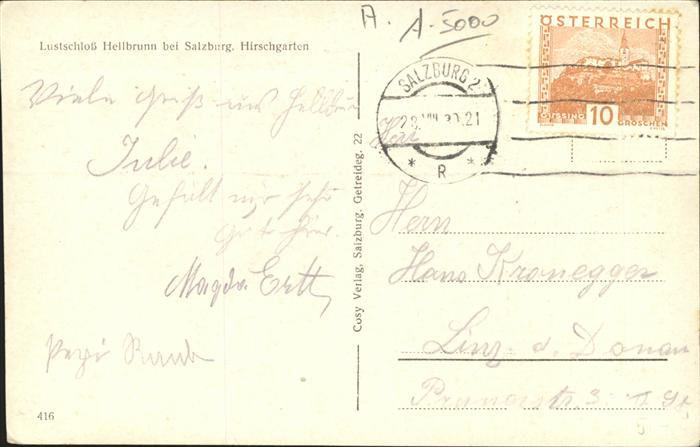 Lustschloß Hellbrunn bei Salzburg. Hirschgarten
A. A-5000
ÖSTERREICH
GÜSSING 10 GROSCHEN
SALZBURG 2
28.VIII.30.21
* R *
Viele aus Hellbrunn
Julie.
Gefällt mir sehr
gut hier.
Magda Ertl
Pepi
Cosy Verlag, Salzburg. Getreideg. 22
Herr
Herrn
Hans Kronegger
Linz a. d. Donau
3
416